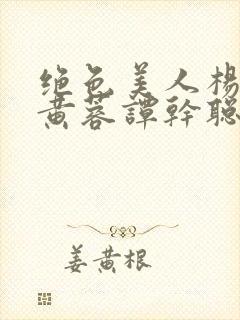 绝色美人杨
黄蓉譚幹聪
姜黄根